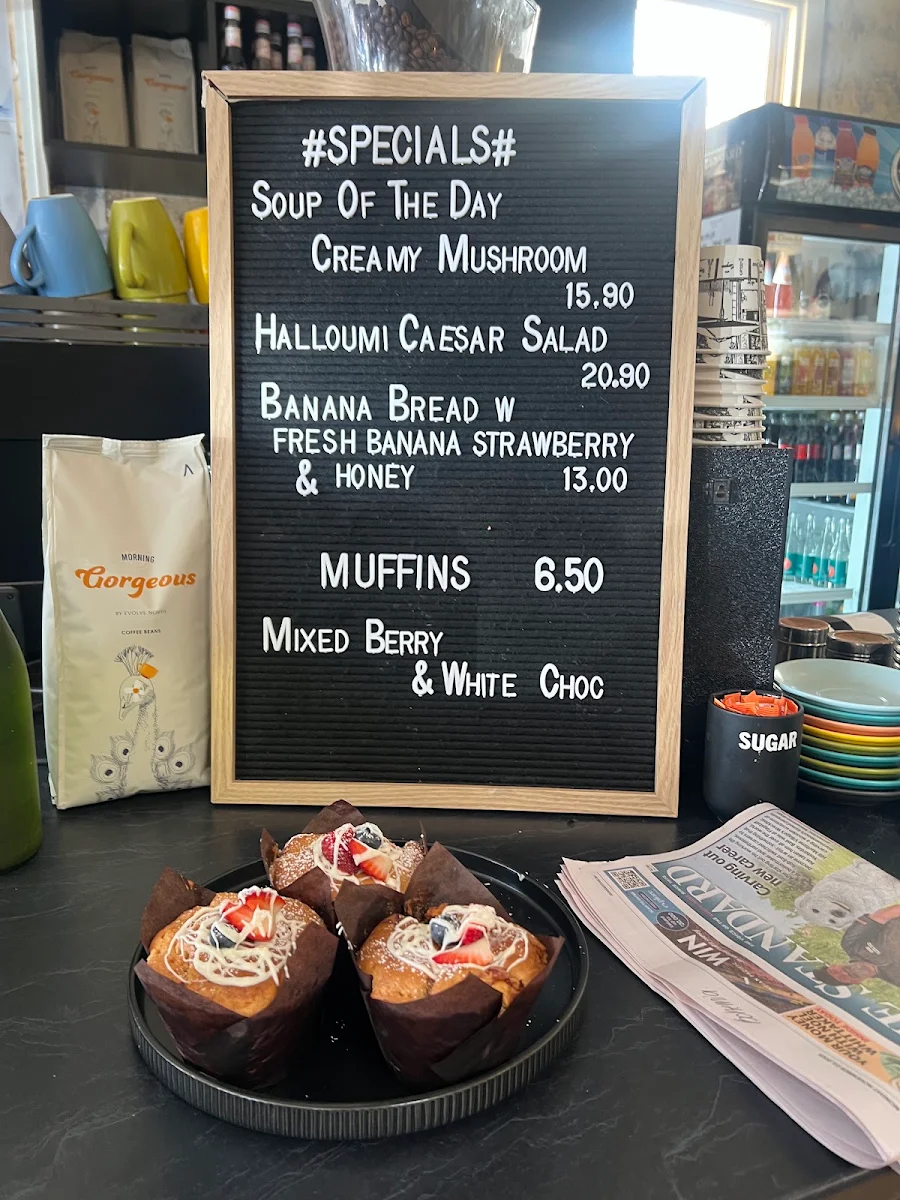 #SPECIALS#
SOUP OF THE DAY
CREAMY MUSHROOM
15.90
HALLOUMI CAESAR SALAD
20.90
BANANA BREAD W
FRESH BANANA STRAWBERRY
& HONEY 13.00
MUFFINS 6.50
MIXED BERRY
& WHITE CHOC
MORNING
Gorgeous
BY EVOLVE NORTH
COFFEE BEANS
Gorgeous
SUGAR
Carving out
new career
STANDARD
WIN